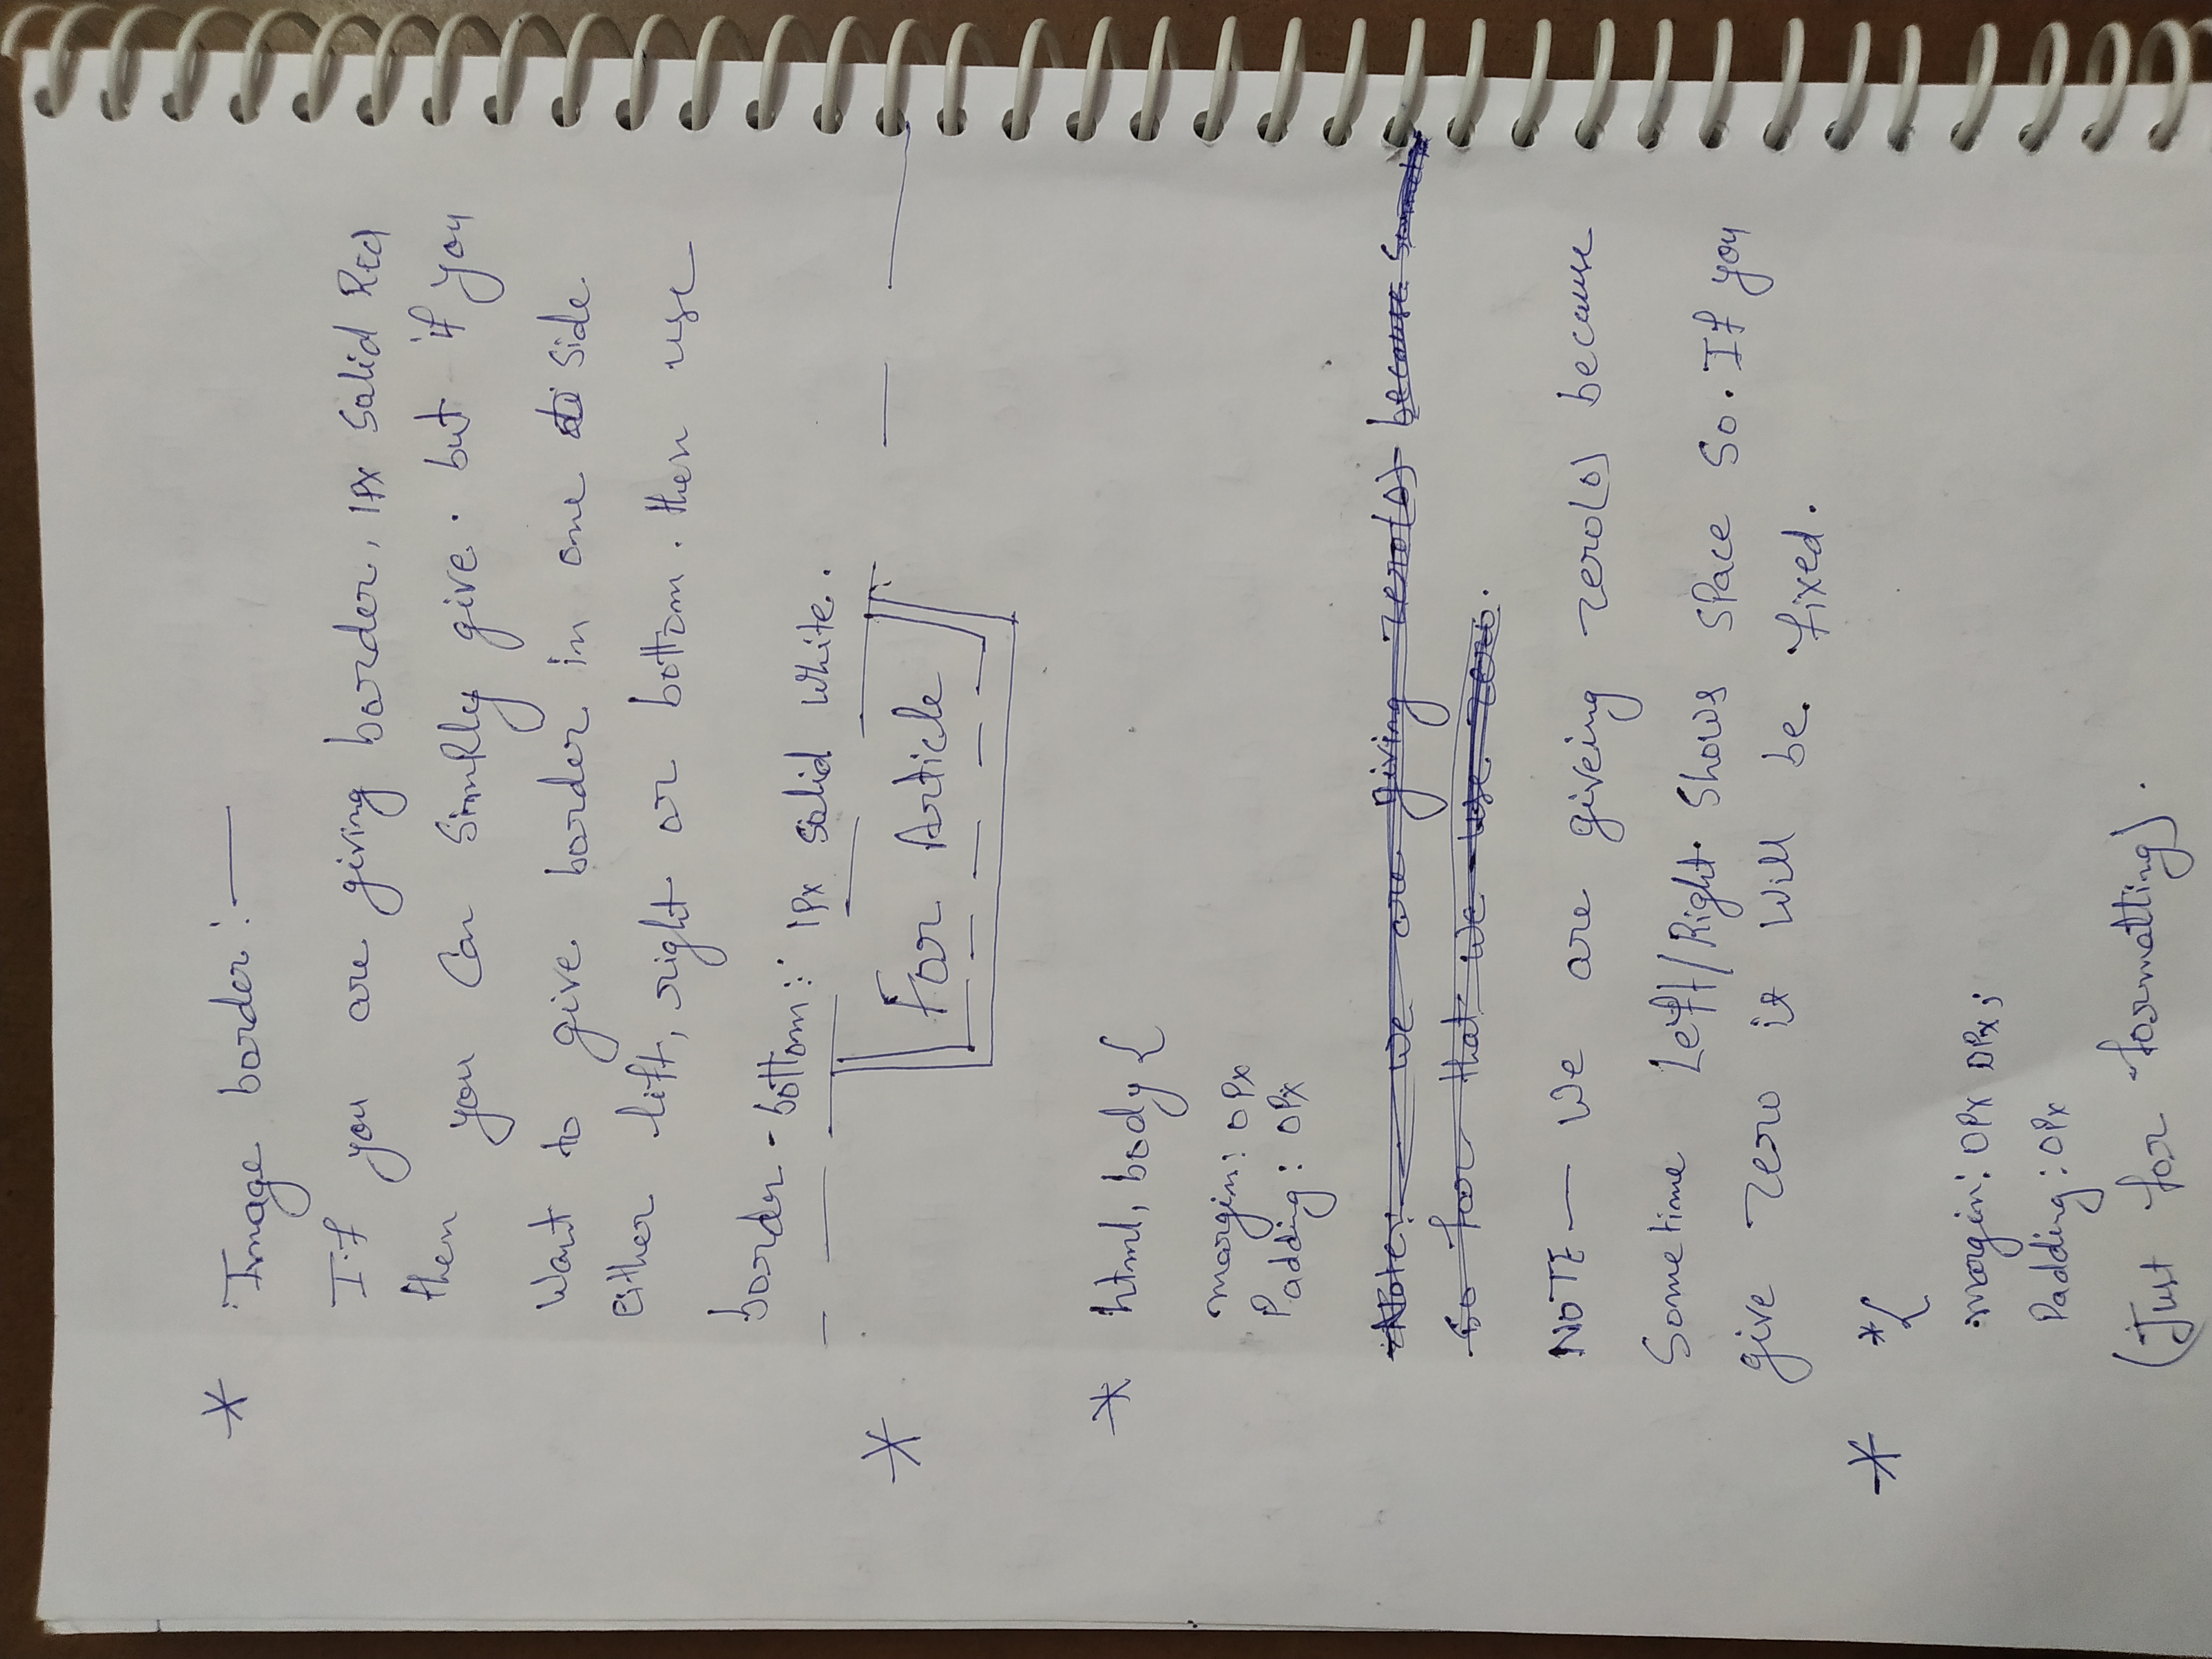 * Image border:—
If you are giving border, 1Px Solid Red
then you can Simply give. but if you
Want to give border in one side
either lift, right or bottom. then use
border-bottom: 1Px solid white.
* For Article
* html, body {
margin: 0Px
Padding: 0Px
Note: we are giving zero(0) because
So for that we use zero.
NOTE— We are giveing zero(0) because
Sometime Left/Right. Shows space so. If you
give zero it will be. fixed.
* *{
margin: 0Px 0Px;
Padding: 0Px
(Just for formatting).